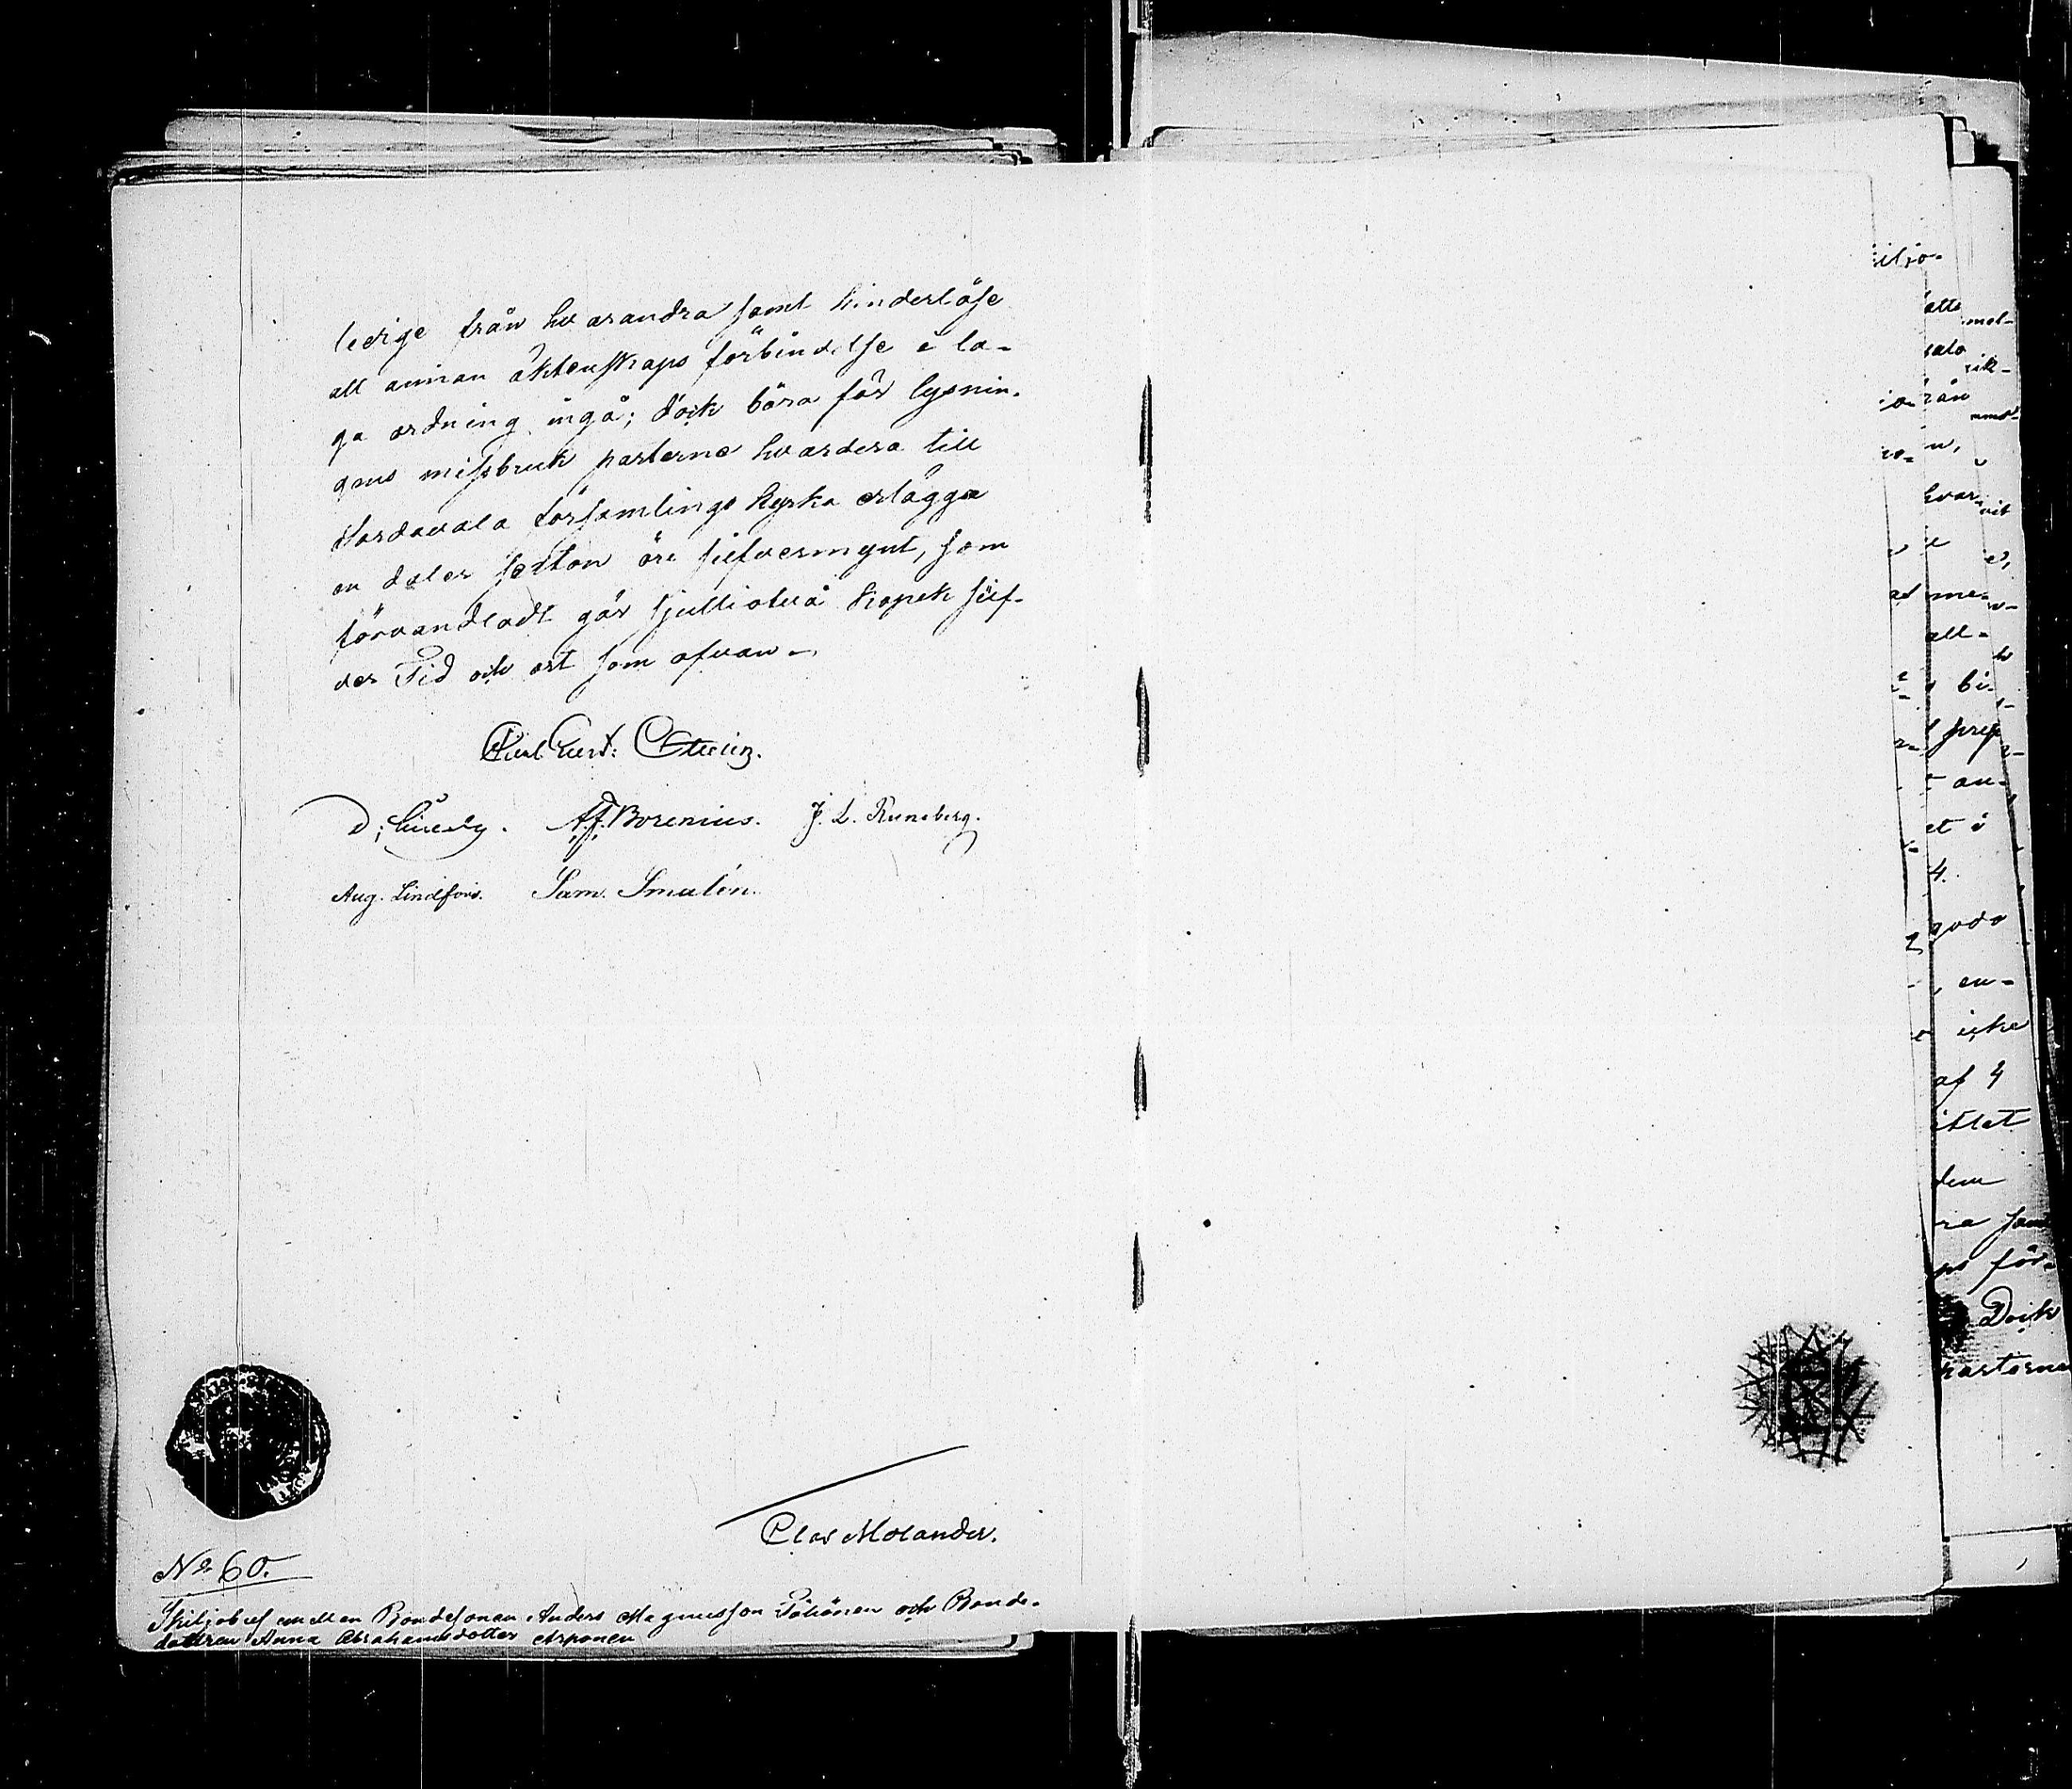 ledige från hvarandra samt hinderlöse
att annan äktenskaps förbindelse i la-
ga ordning ingå; dock böra för lysnin-
gens missbruk parterne hvardera till
Sordavala församlings kyrka erlägga
en daler sexton öre silfvermynt, som
förvandladt gör sjuttiotvå kopek silf-
ver Tid och ort som ofvan.
Carl Gust: Ottelin.
A. J. Borenius. J. L. Runeberg.
Aug. Lindfors. Sam. Smalén.
Clas Molander.
No 60.
Skiljobref emellan Bondesonen Anders Magnusson Pöhönen och Bonde-
dottren Anna Abrahamsdotter Arponen
iljo-
mel-
rån
hvar
me-
all-
bi-
an-
et i
4.
en-
icke
af 4
dem
ra samt
för-
Dock
parterna